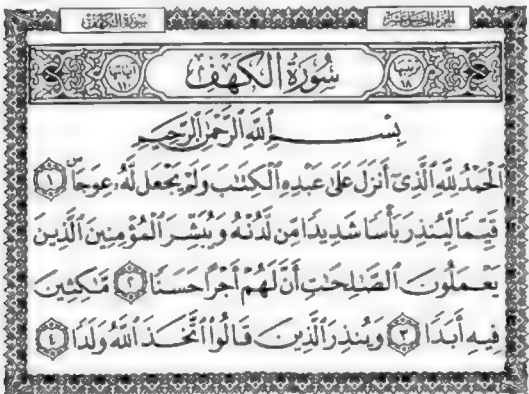 سُورَةُ الكَهْفِ الجزء الخامس عشر
ترتيبها ١٨ سُورَةُ الكَهْفِ آياتها ١١٠
بِسْمِ ٱللَّهِ ٱلرَّحْمَٰنِ ٱلرَّحِيمِ
ٱلْحَمْدُ لِلَّهِ ٱلَّذِىٓ أَنزَلَ عَلَىٰ عَبْدِهِ ٱلْكِتَٰبَ وَلَمْ يَجْعَل لَّهُۥ عِوَجَاۜ ١
قَيِّمًا لِّيُنذِرَ بَأْسًا شَدِيدًا مِّن لَّدُنْهُ وَيُبَشِّرَ ٱلْمُؤْمِنِينَ ٱلَّذِينَ
يَعْمَلُونَ ٱلصَّٰلِحَٰتِ أَنَّ لَهُمْ أَجْرًا حَسَنًا ٢ مَّٰكِثِينَ
فِيهِ أَبَدًا ٣ وَيُنذِرَ ٱلَّذِينَ قَالُوا۟ ٱتَّخَذَ ٱللَّهُ وَلَدًا ٤